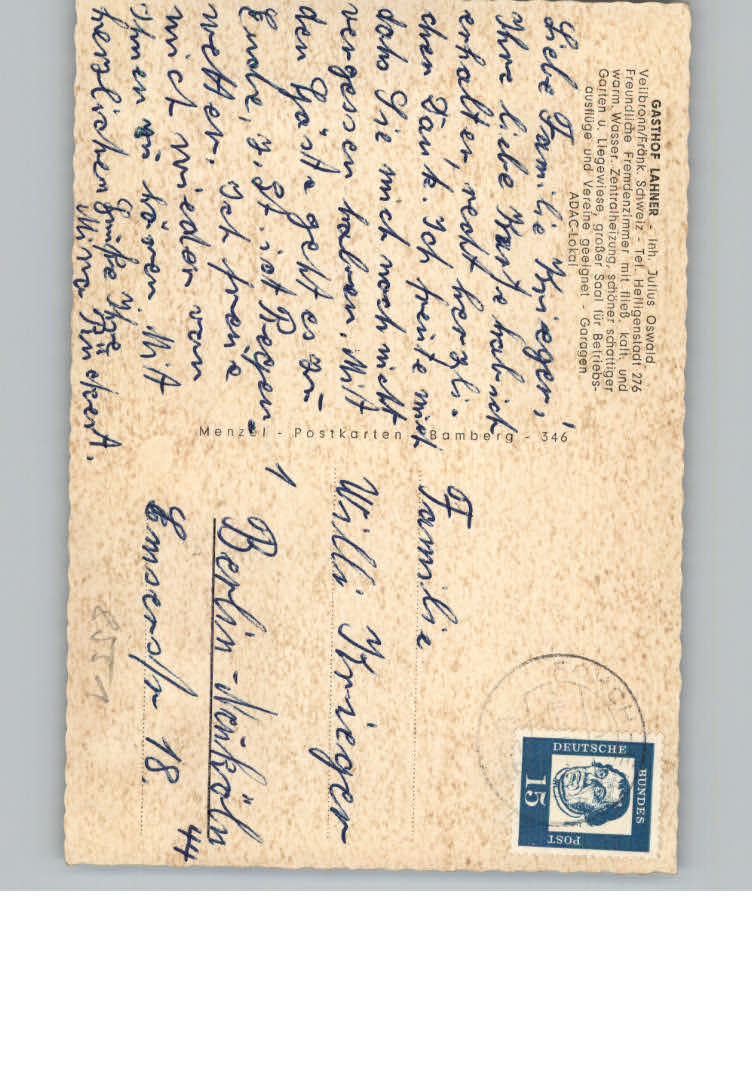 GASTHOF LAHNER - Inh. Julius Oswald
Veilbronn/Fränk. Schweiz - Tel. Heiligenstadt 276
Freundliche Fremdenzimmer mit fließ. kalt. und
warm. Wasser. Zentralheizung, schöner schattiger
Garten u. Liegewiese, großer Saal für Betriebs-
ausflüge und Vereine geeignet - Garagen
ADAC-Lokal
Liebe Familie Krieger!
Ihre liebe Karte hab ich
erhalten, recht herzli-
chen Dank. Ich freute mich
dass Sie mich noch nicht
vergessen haben. Mit
den Gäste geht es zu
Ende, z. Zt. ist Regen-
wetter. Ich freue
mich wieder von
Ihnen zu hören. Mit
herzlichen Grüße Ihre
Mina Rückert.
Menzel - Postkarten - Bamberg - 346
Familie
Willi Krieger
1
Berlin-Neuköln
44
Emserstr 18.
8551
DEUTSCHE
BUNDES
POST
15